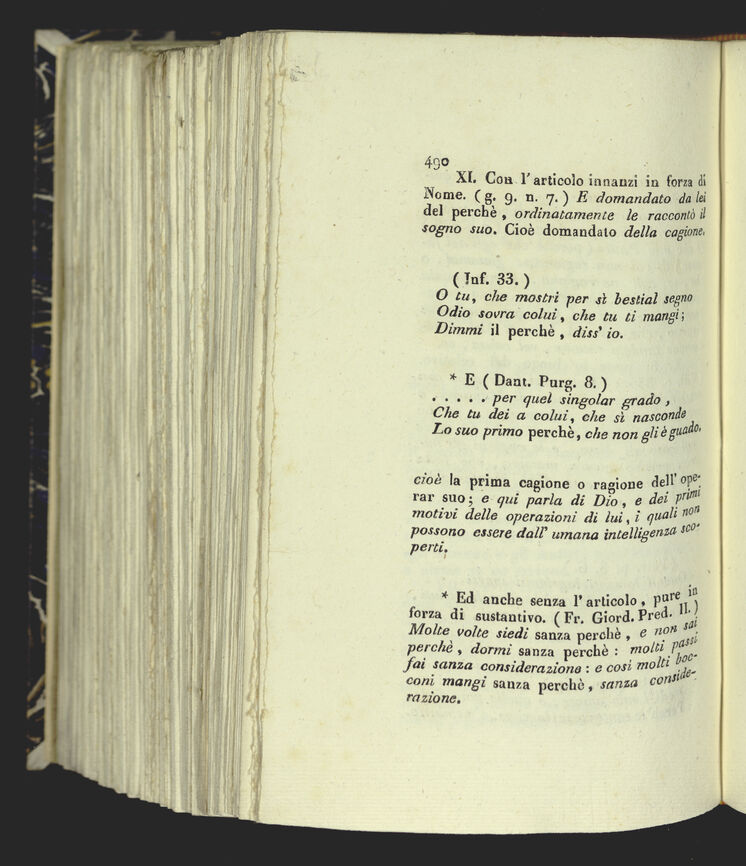 490
XI. Con l'articolo innanzi in forza di
Nome. (g. 9. n. 7.) E domandato da lei
del perchè, ordinatamente le raccontò il
sogno suo. Cioè domandato della cagione.
(Inf. 33.)
O tu, che mostri per sì bestial segno
Odio sovra colui, che tu ti mangi;
Dimmi il perchè, diss' io.
* E (Dant. Purg. 8.)
. . . . . per quel singolar grado,
Che tu dei a colui, che sì nasconde
Lo suo primo perchè, che non gli è guado.
cioè la prima cagione o ragione dell' ope-
rar suo; e qui parla di Dio, e dei primi
motivi delle operazioni di lui, i quali non
possono essere dall' umana intelligenza sco-
perti.
* Ed anche senza l'articolo, pure in
forza di sustantivo. (Fr. Giord. Pred. II.)
Molte volte siedi sanza perchè, e non sai
perchè, dormi sanza perchè: molti passi
fai sanza considerazione: e così molti boc-
coni mangi sanza perchè, sanza conside-
razione.